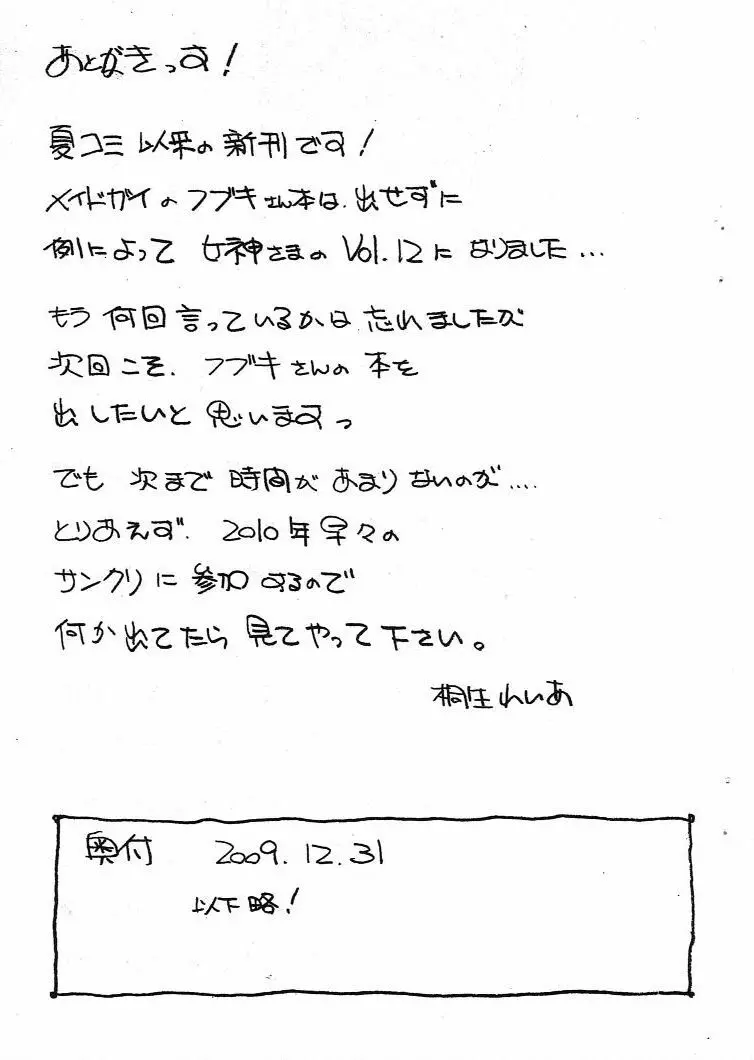 あとがきっす!
夏コミ以来の新刊です!
メイドガイのフブキさん本は、出せずに
例によって 女神さまの Vol.12に なりました…
もう 何回言っているかは 忘れましたが
次回こそ、フブキさんの 本を
出したいと 思いますっ
でも 次まで 時間が あまりないのが‥‥
とりあえず、2010年早々の
サンクリに 参加するので
何か出てたら 見てやって下さい。
桐生れいあ
奥付 2009.12.31
以下略!